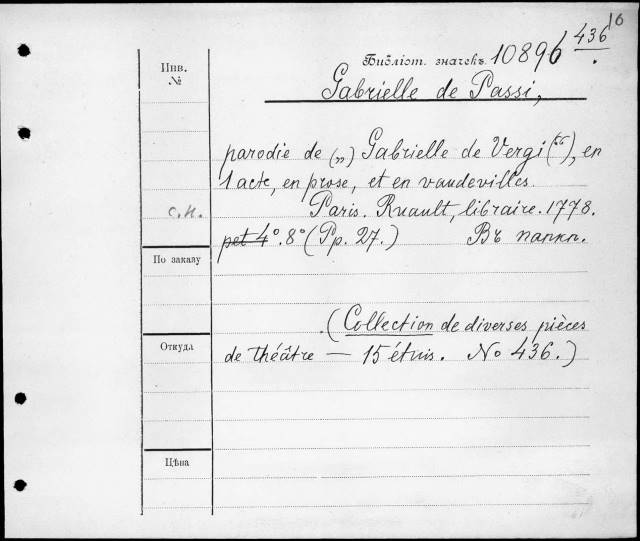 16
436
Библіот. значекъ 10896
Gabrielle de Passi,
Инв.
№
parodie de („) Gabrielle de Vergi (“), en
1 acte, en prose, et en vaudevilles.
с.н.
Paris. Ruault, libraire. 1778.
pet 4°. 8° (Pp. 27.) Въ папкѣ.
По заказу
(Collection de diverses pièces
Откуда
de théâtre — 15 étuis. No 436.)
Цѣна